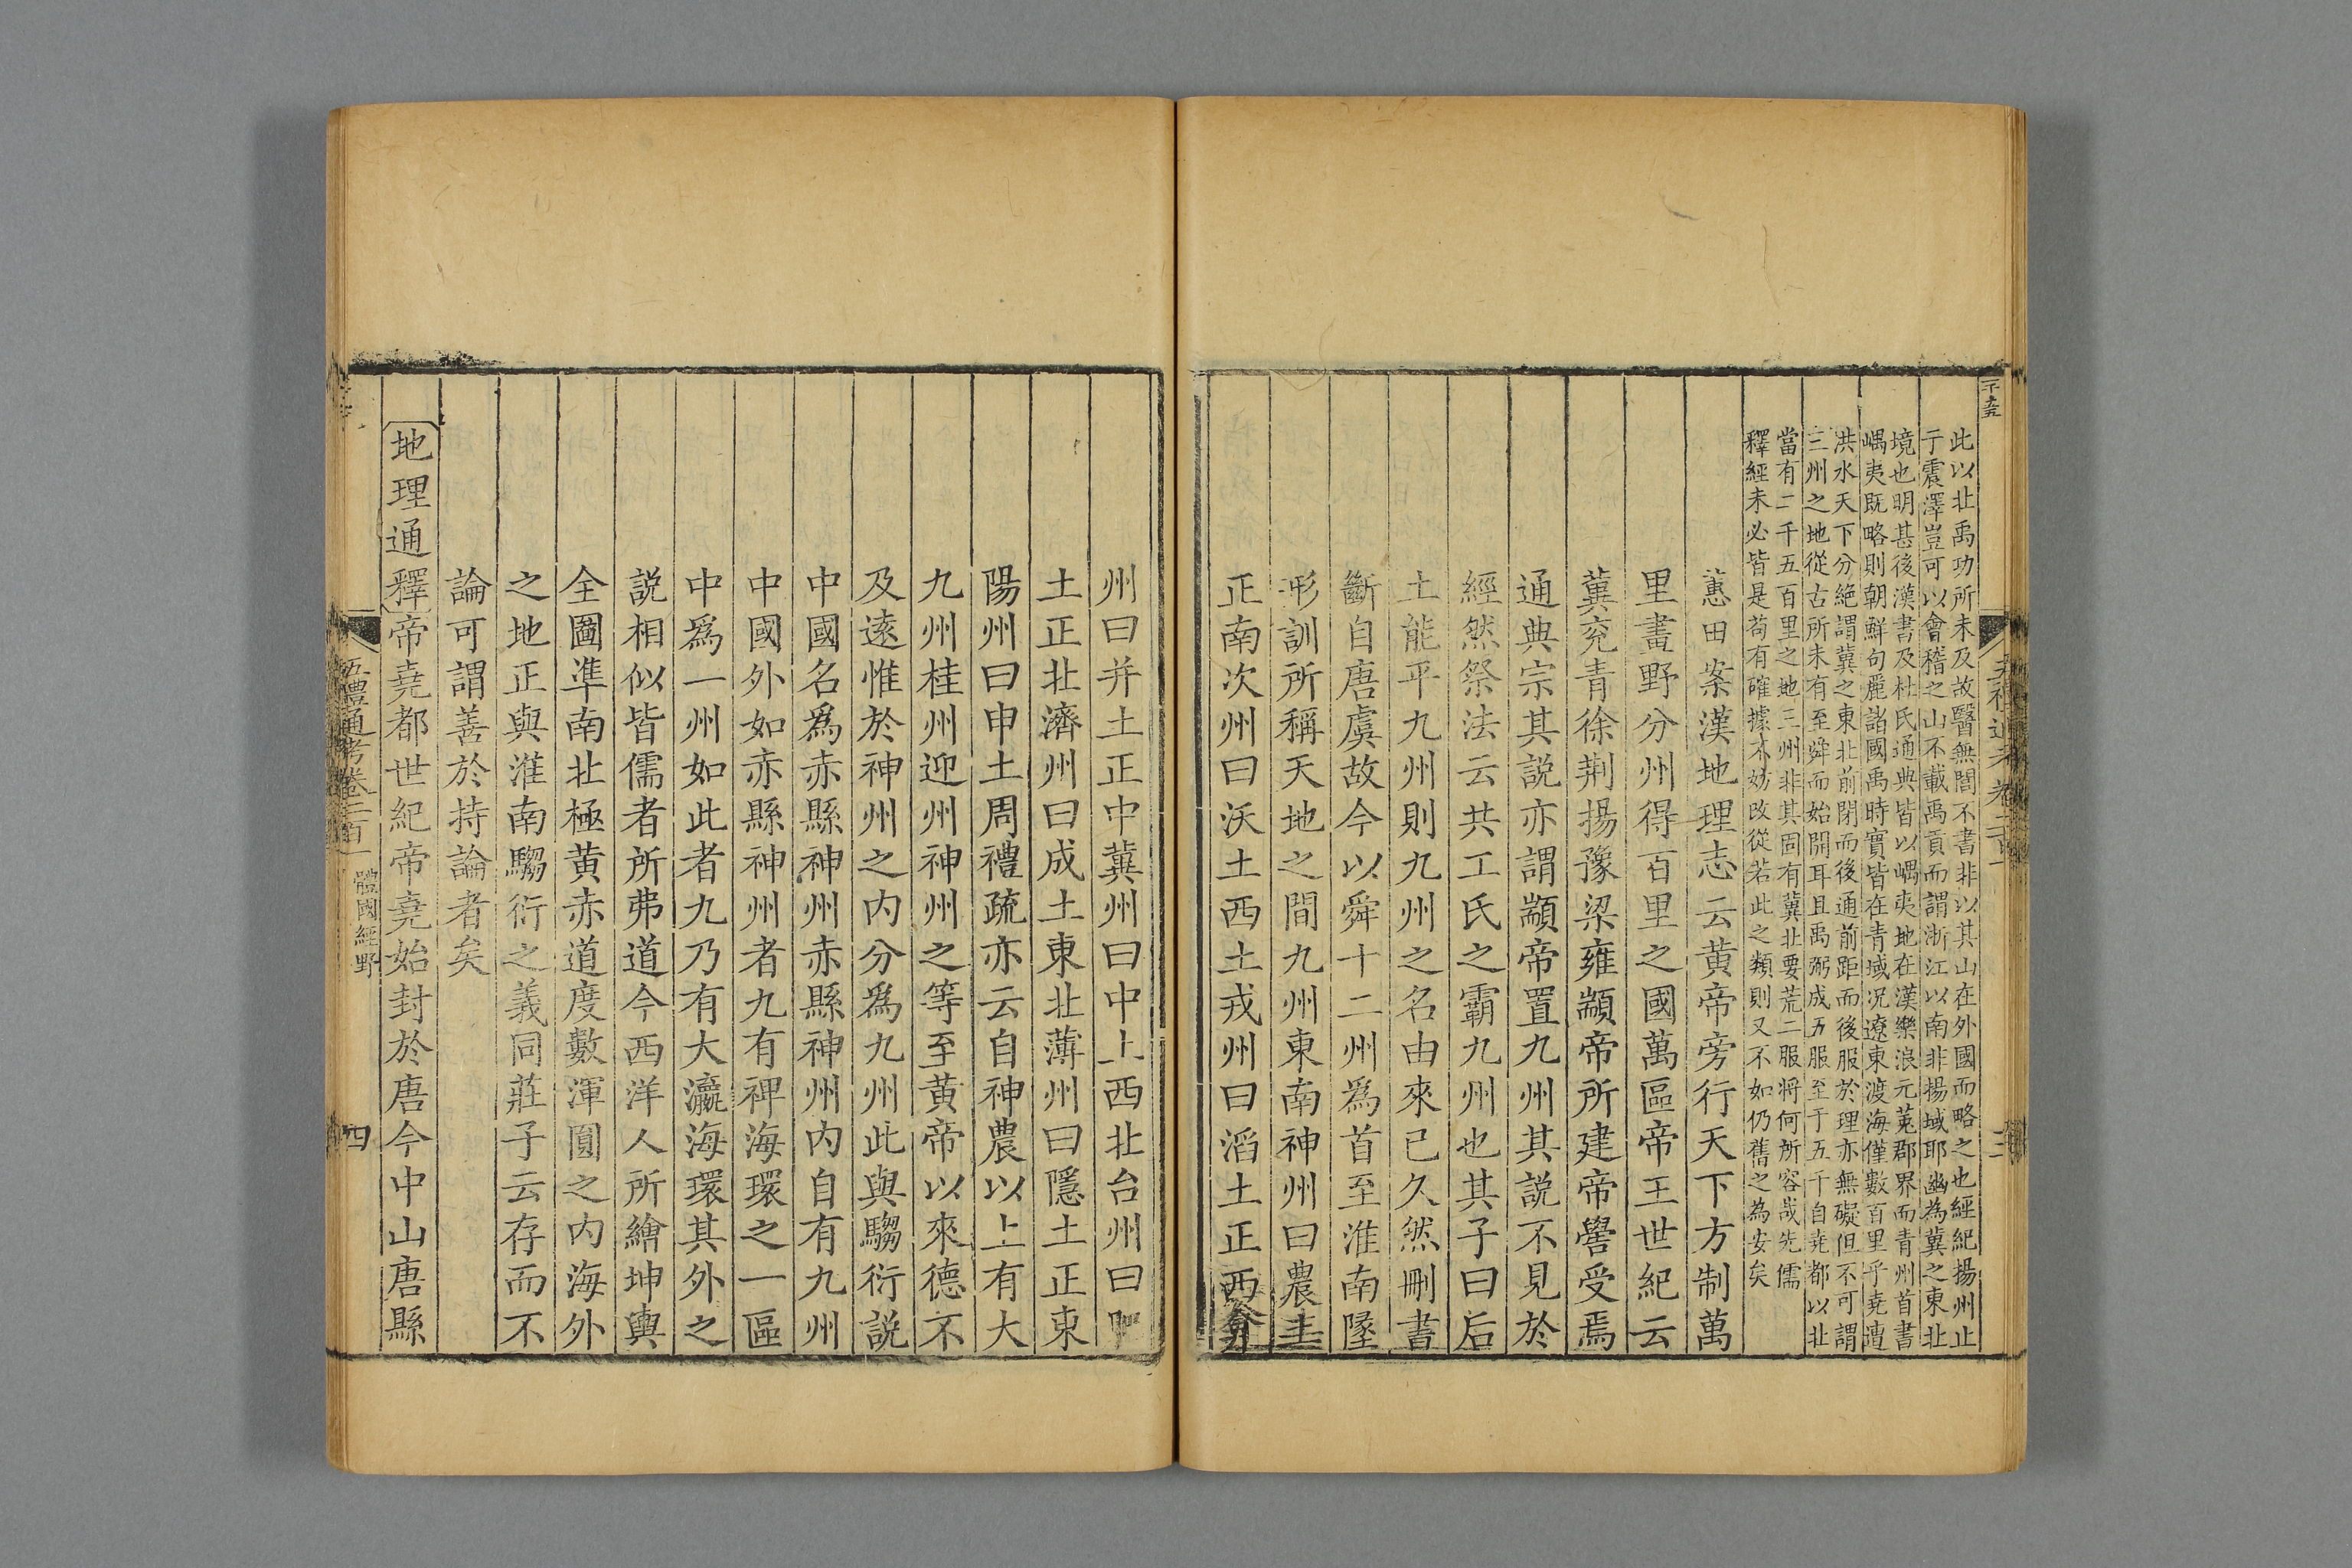 此以北禹功所未及故醫無閭不書非以其山在外國而略之也經紀揚州止
于震澤豈可以會稽之山不載禹貢而謂浙江以南非揚域耶幽為冀之東北
境也明甚後漢書及杜氏通典皆以嵎夷地在漢樂浪元菟郡界而青州首書
嵎夷既略則朝鮮句麗諸國禹時實皆在青域况遼東渡海僅數百里乎堯遭
洪水天下分絶謂冀之東北前閉而後通前距而後服於理亦無礙但不可謂
三州之地從古所未有至舜而始開耳且禹弼成五服至于五千自堯都以北
當有二千五百里之地三州非其固有冀北要荒二服將何所容哉先儒
釋經未必皆是苟有確據不妨改從若此之類則又不如仍舊之為安矣
蕙田案漢地理志云黄帝旁行天下方制萬
里畫野分州得百里之國萬區帝王世紀云
冀兖青徐荆揚豫梁雍顓帝所建帝嚳受焉
通典宗其説亦謂顓帝置九州其説不見於
經然祭法云共工氏之霸九州也其子曰后
土能平九州則九州之名由來已久然刪書
斷自唐虞故今以舜十二州為首至淮南墜
形訓所稱天地之間九州東南神州曰農土
正南次州曰沃土西土戎州曰滔土正西弇
州曰并土正中冀州曰中土西北台州曰肥
土正北濟州曰成土東北薄州曰隱土正東
陽州曰申土周禮疏亦云自神農以上有大
九州桂州迎州神州之等至黄帝以來德不
及遠惟於神州之内分爲九州此與騶衍説
中國名爲赤縣神州赤縣神州内自有九州
中國外如赤縣神州者九有裨海環之一區
中爲一州如此者九乃有大瀛海環其外之
説相似皆儒者所弗道今西洋人所繪坤輿
全圖準南北極黄赤道度數渾圓之内海外
之地正與淮南騶衍之義同莊子云存而不
論可謂善於持論者矣
地理通釋帝堯都世紀帝堯始封於唐今中山唐縣
五禮通考卷二百一 體國經野 四